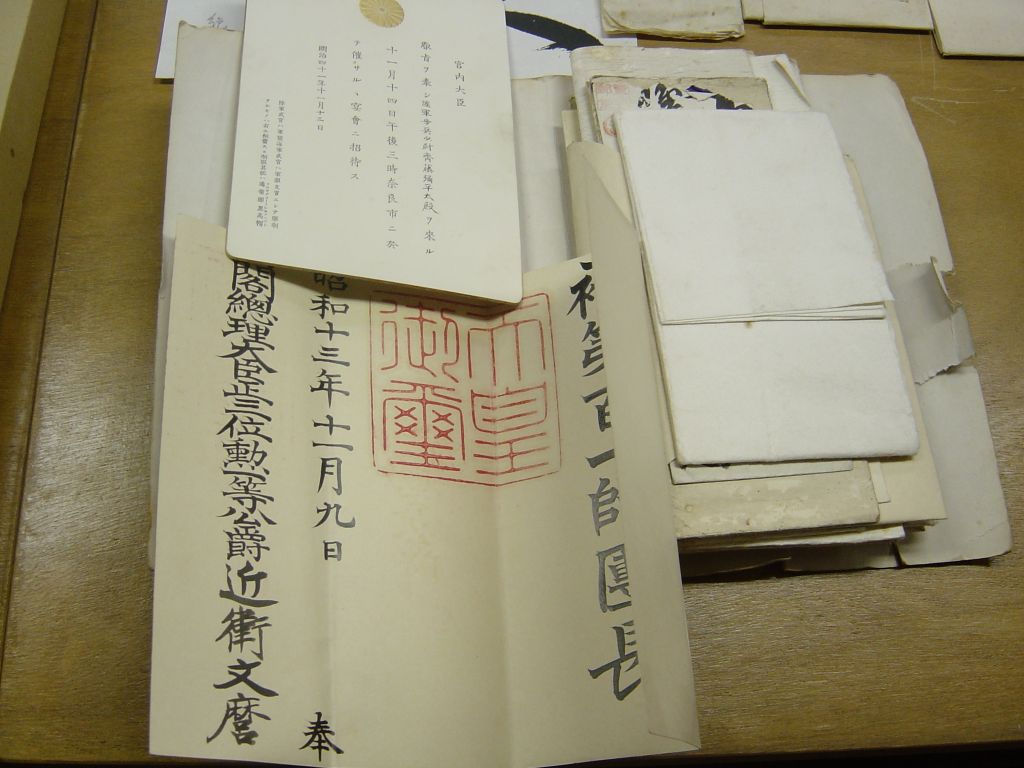 宮内大臣
旨ヲ奉シ陸軍歩兵少尉齊藤彌平太殿ヲ來ル
十一月十四日午後三時奈良市ニ於
テ催サルヽ宴會ニ招待ス
明治四十一年十一月十三日
補第百一師團長
天皇
御璽
昭和十三年十一月九日
奉
閣總理大臣正三位勲一等公爵近衛文麿